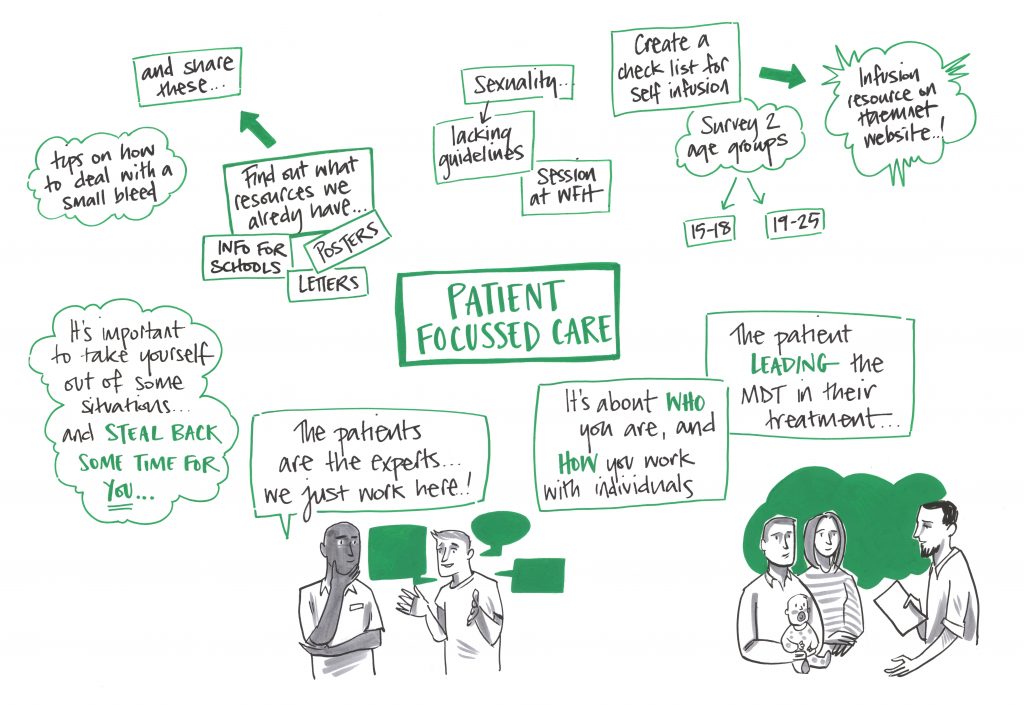 and share
these...
tips on how
to deal with a
small bleed
Find out what
resources we
alredy have...
INFO FOR
SCHOOLS
POSTERS
LETTERS
Sexuality...
lacking
guidelines
SESSION
AT WFH
Create a
check list for
self infusion
Survey 2
age groups
15-18
19-25
Infusion
resource on
Haemnet
website..!
PATIENT
FOCUSSED CARE
It's important
to take yourself
out of some
situations...
and STEAL BACK
SOME TIME FOR
YOU...
The patients
are the experts...
we just work here..!
It's about WHO
you are, and
HOW you work
with individuals
The patient
LEADING the
MDT in their
treatment...